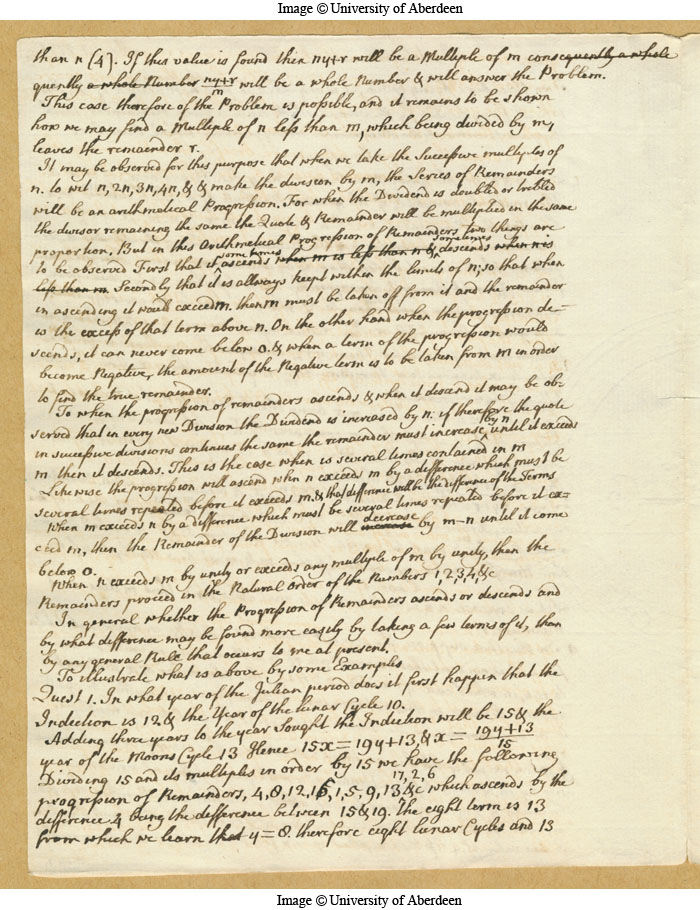 Image © University of Aberdeen
than n (4). If this value is found then ny+r will be a Multiple of m consequently a whole
quently a whole Number ny+r/m will be a whole Number & will answer the Problem.
This case therefore of the Problem is possible, and it remains to be shown
how we may find a Multiple of n less than m, which being divided by m,
leaves the remainder r.
It may be observed for this purpose that when we take the Successive multiples of
n. to wit n, 2n, 3n, 4n, & & make the division by m, the Series of Remainders
will be an arithmetical Progression. For when the Dividend is doubled or trebled
the divisor remaining the same the Quote & Remainder will be multiplied in the same
proportion. But in this Arithmetical Progression of Remainders two things are
to be observed First that it sometimes ascends when m is less than n & sometimes descends when n is
less than m. Secondly that it is allways kept within the limits of n; so that when
in ascending it would exceed m. then m must be taken off from it and the remainder
is the excess of that term above n. On the other hand when the progression de-
scends, it can never come below 0. & when a term of the progression would
become Negative, the amount of the Negative term is to be taken from m in order
to find the true remainder.
To when the progression of remainders ascends & when it descend it may be ob-
served that in every new Division the Dividend is increased by n. if therefore the quote
in successive divisions continues the same the remainder must increase by n until it exceeds
m then it descends. This is the case when is several times contained in m
Likewise the progression will ascend when n exceeds m by a difference which must be
several times repeated before it exceeds m. & that difference will be the difference of the Terms
When m exceeds n by a difference which must be several times repeated before it ex=
ceed m, then the Remainder of the Division will increase decrease by m-n until it come
below 0.
When n exceeds m by unity or exceeds any multiple of m by unity, then the
Remainders proceed in the Natural order of the Numbers 1, 2, 3, 4, &c
In general whether the Progression of Remainders ascends or descends and
by what difference may be found more easily by taking a few terms of it, than
by any general Rule that occurs to me at present.
To illustrate what is above by some Examples
Quest 1. In what year of the Julian period does it first happen that the
Indiction is 12 & the Year of the lunar Cycle 10.
Adding three years to the year sought the Indiction will be 15 & the
year of the Moons Cycle 13 Hence 15x = 19y+13, & x = 19y+13/15
Dividing 15 and its multiples in order by 15 we have the following
progression of Remainders, 4, 8, 12, 1, 5, 9, 13, 17, 2, 6 &c which ascends by the
difference 4 being the difference between 15 & 19. The eight term is 13
from which we learn that y = 8. therefore eight lunar Cycles and 13
Image © University of Aberdeen